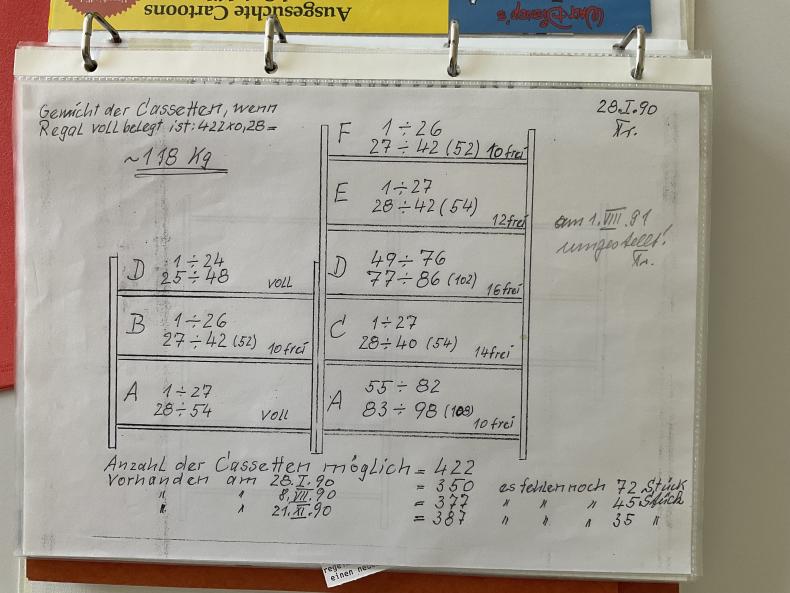 Ausgesuchte Cartoons
Walt Disney's
Gewicht der Cassetten, wenn
Regal voll belegt ist: 422x0,28=
~118 Kg
28.I.90
Kr.
F 1÷26
27÷42 (52) 10 frei
E 1÷27
28÷42 (54)
12 frei
am 1.VIII.91
umgestellt!
Kr.
D 1÷24
25÷48 voll
D 49÷76
77÷86 (102)
16 frei
B 1÷26
27÷42 (52) 10 frei
C 1÷27
28÷40 (54) 14 frei
A 1÷27
28÷54 voll
A 55÷82
83÷98 (108)
10 frei
Anzahl der Cassetten möglich = 422
Vorhanden am 28.I.90 = 350 es fehlen noch 72 Stück
" " 8.VII.90 = 377 " " " 45 Stück
" " 21.XI.90 = 387 " " " 35 "
einen neue